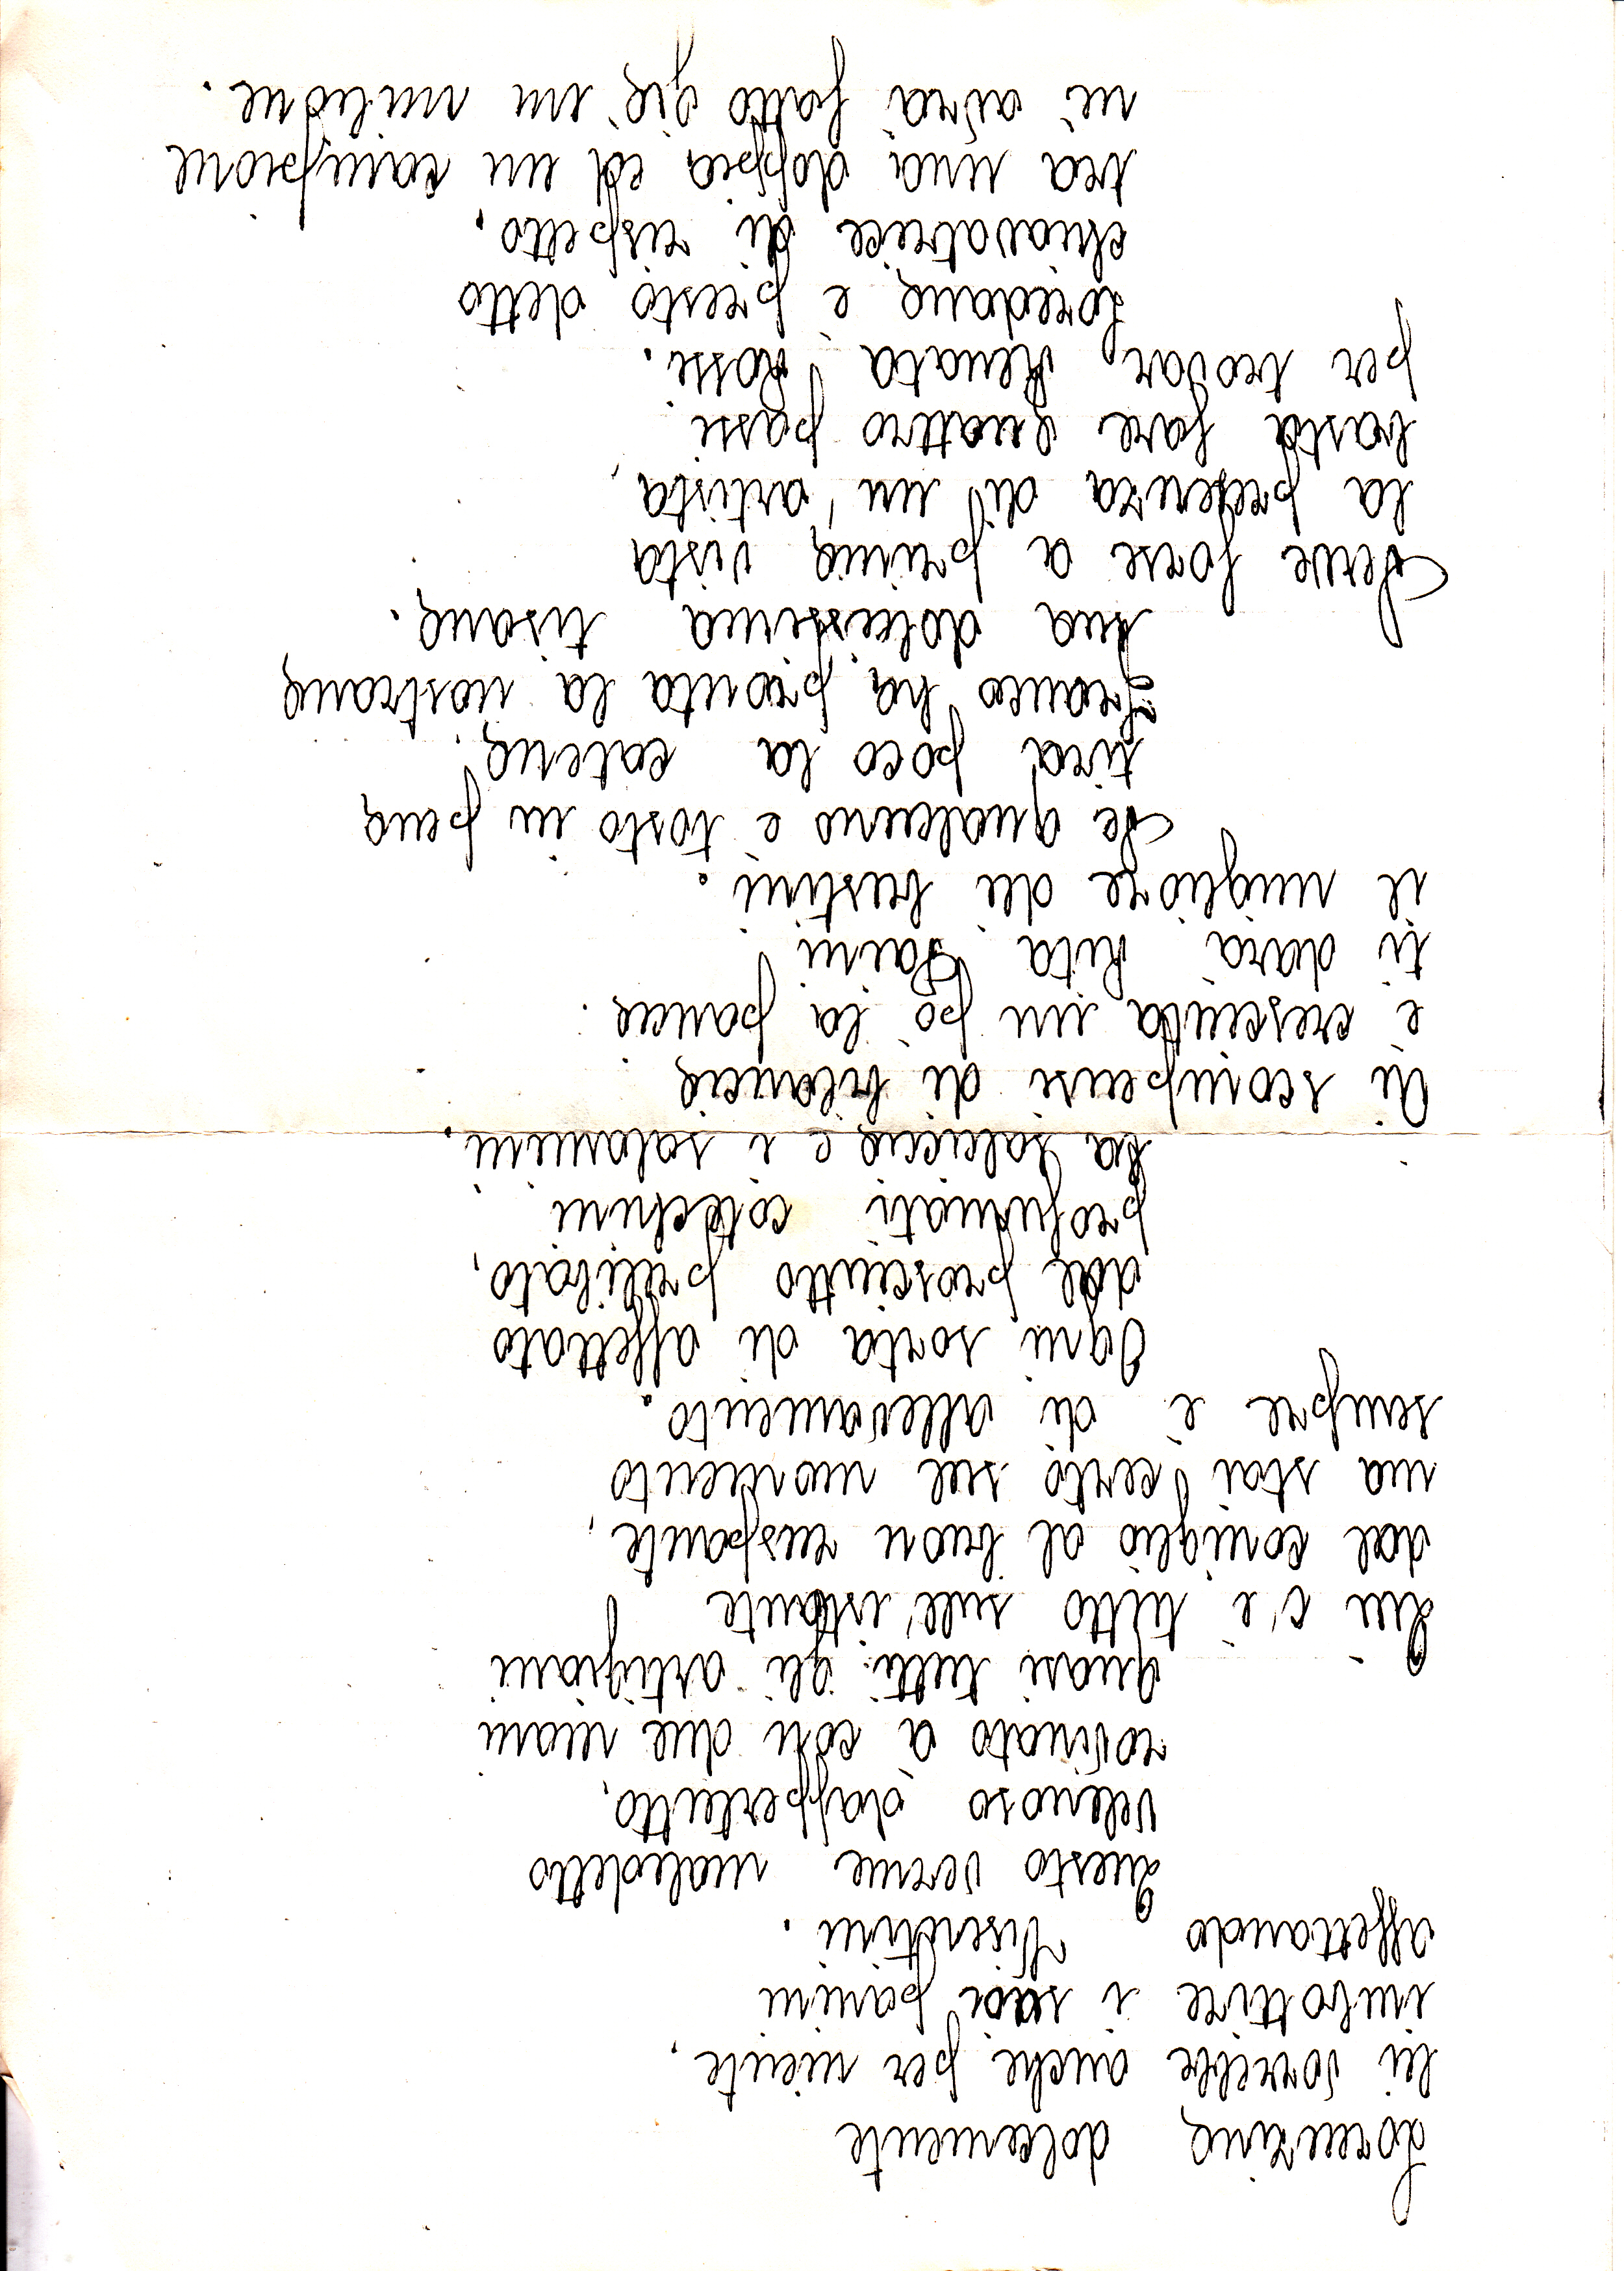 Lorenzina dolcemente
lei vorrebbe anche per niente,
imbottire i suoi panini
affettando Visentini.
Questo verme maledetto
velenoso dappertutto,
rovinato à con due mani
quasi tutti gli artigiani
Qui c'è tutto sull'istante
dal coniglio al buon ruspante,
ma stai certo sul momento
sempre è di allevamento.
Ogni sorta di affettato
dal prosciutto prelibato,
profumati cotechini
la salciccia e i salamini.
Ai scompensi di bilancia
è cresciuta un pò la pancia.
ti darà Rita Paini
il migliore dei bustini.
Se qualcuno è tosto in pena
tira poco la catena.
Franco ha pronta la nostrana
sua dolcissima tisana.
Serve forse a prima vista
la presenza di un'artista,
basta fare quattro passi
per trovar Renata Rossi.
Loredana è presto detto
chiavatrice di rispetto,
tra una doppia ed un campione
nè avrà fatto già un milione.